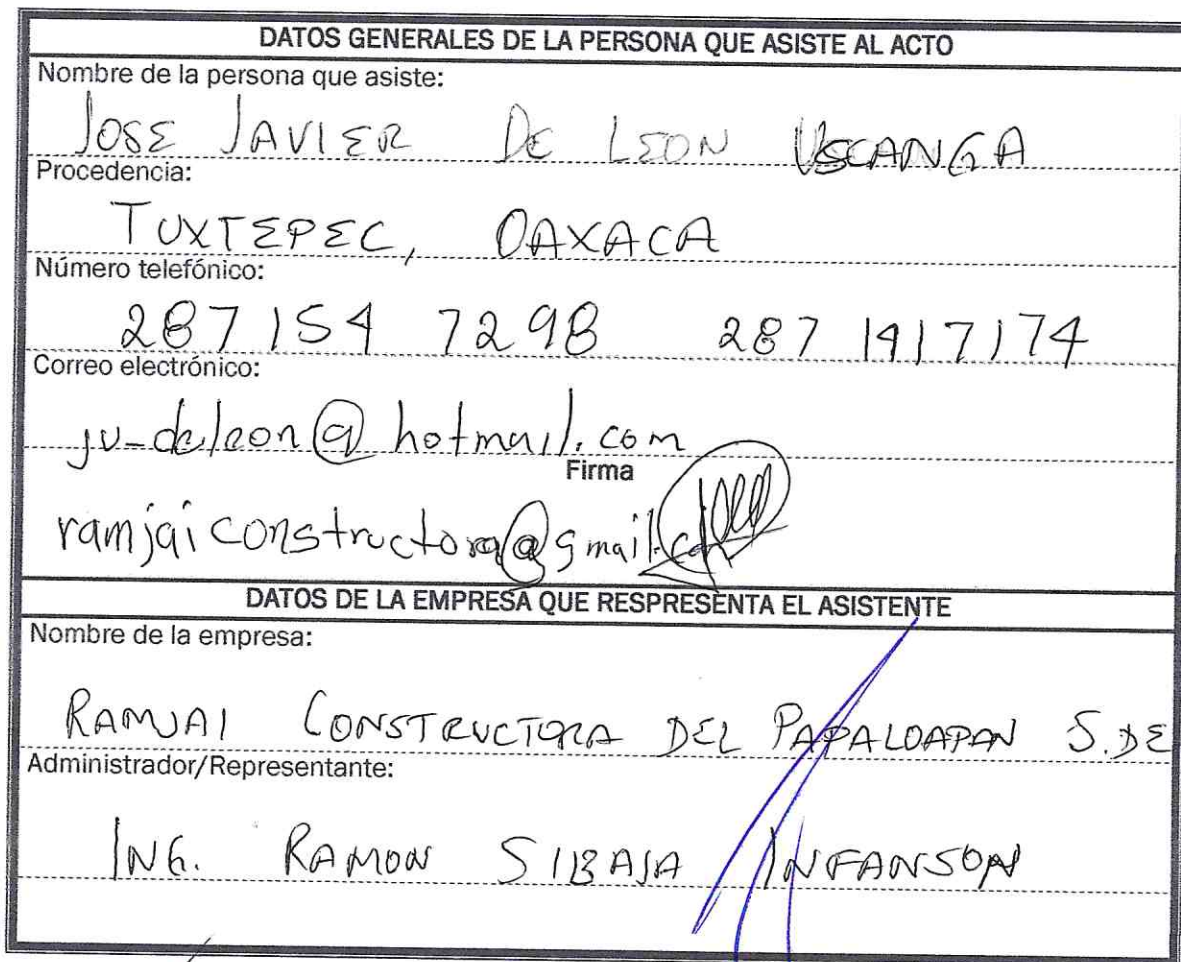 DATOS GENERALES DE LA PERSONA QUE ASISTE AL ACTO
Nombre de la persona que asiste:
JOSE JAVIER DE LEON USCANGA
Procedencia:
TUXTEPEC, OAXACA
Número telefónico:
287 154 7298 287 1417174
Correo electrónico:
ju_deleon@hotmail.com
Firma
ramjaiconstructora@gmail.com
DATOS DE LA EMPRESA QUE RESPRESENTA EL ASISTENTE
Nombre de la empresa:
RAMJAI CONSTRUCTORA DEL PAPALOAPAN S. DE
Administrador/Representante:
ING. RAMON SIBAJA INFANSON